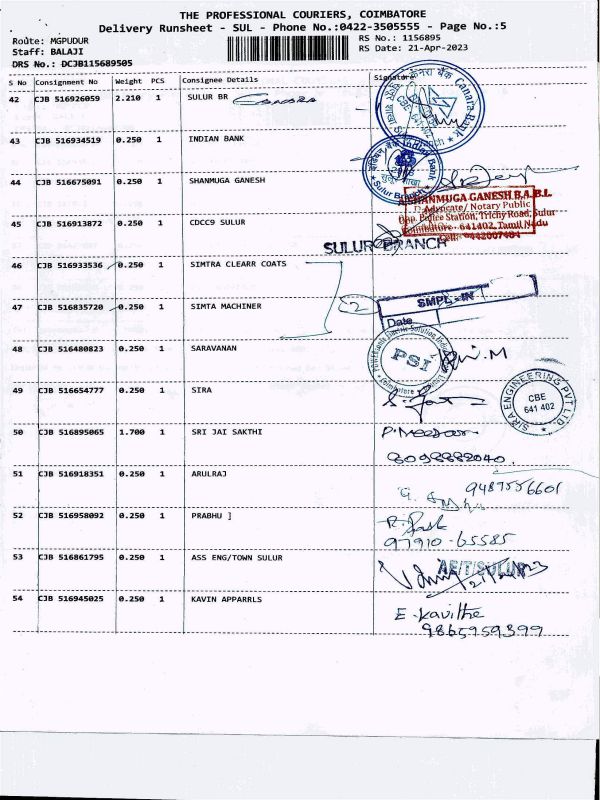 THE PROFESSIONAL COURIERS, COIMBATORE
Delivery Runsheet - SUL - Phone No.:0422-3505555 - Page No.:5
Route: MGPUDUR
RS No.: 1156895
Staff: BALAJI
RS Date: 21-Apr-2023
DRS No.: DCJB115689505
S No Consignment No Weight PCS Consignee Details Signature
42 CJB 516926059 2.210 1 SULUR BR
Canara Bank
43 CJB 516934519 0.250 1 INDIAN BANK
Indian Bank
Sulur Branch
44 CJB 516675091 0.250 1 SHANMUGA GANESH
SHANMUGA GANESH B.A.B.L
Advocate/ Notary Public
Opp. Police Station, Trichy Road, Sulur
Coimbatore - 641402. Tamil Nadu
45 CJB 516913872 0.250 1 CDCC9 SULUR
SULUR BRANCH
46 CJB 516933536 0.250 1 SIMTRA CLEARR COATS
47 CJB 516835720 0.250 1 SIMTA MACHINER
2
SMPL - IN
Date
48 CJB 516480823 0.250 1 SARAVANAN
PSI
49 CJB 516654777 0.250 1 SIRA
SIRA ENGINEERING PVT LTD
CBE
641 402
50 CJB 516895065 1.700 1 SRI JAI SAKTHI
8098882040
51 CJB 516918351 0.250 1 ARULRAJ
9487556601
52 CJB 516958092 0.250 1 PRABHU ]
97910-65585
53 CJB 516861795 0.250 1 ASS ENG/TOWN SULUR
AE/T/SULUR
54 CJB 516945025 0.250 1 KAVIN APPARRLS
E. Kavitha
9865959399